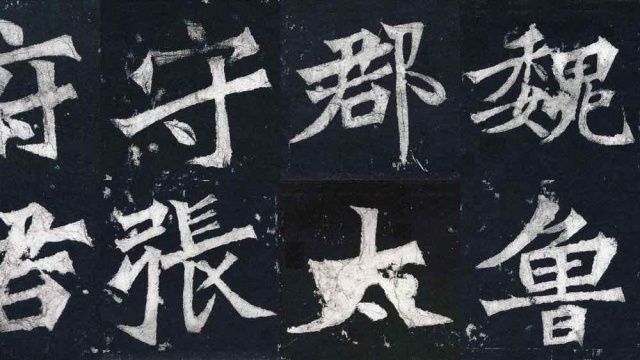 魏魯
郡太
守張
府君